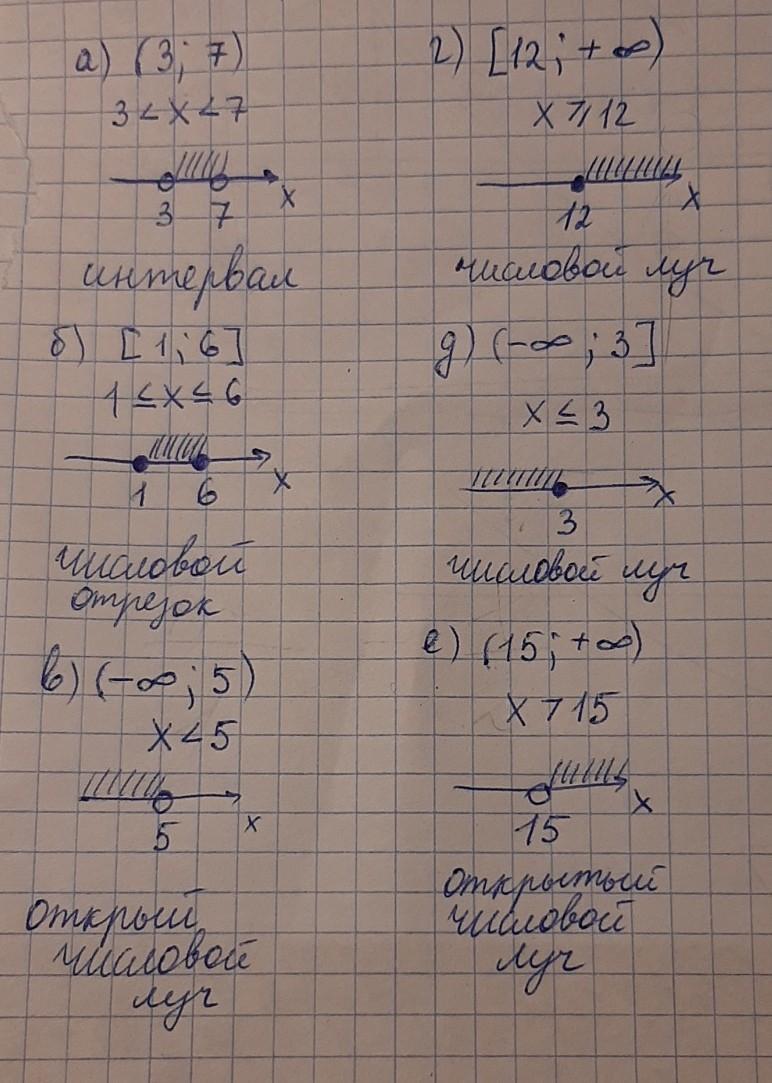 а) (3; 7)
3 < x < 7
3 7 x
интервал
б) [1; 6]
1 ≤ x ≤ 6
1 6 x
числовой
отрезок
в) (-∞; 5)
x < 5
5 x
открый
числовой
луч
г) [12; +∞)
x ⩾ 12
12 x
числовой луч
д) (-∞; 3]
x ≤ 3
3 x
числовой луч
е) (15; +∞)
x > 15
15 x
открытый
числовой
луч